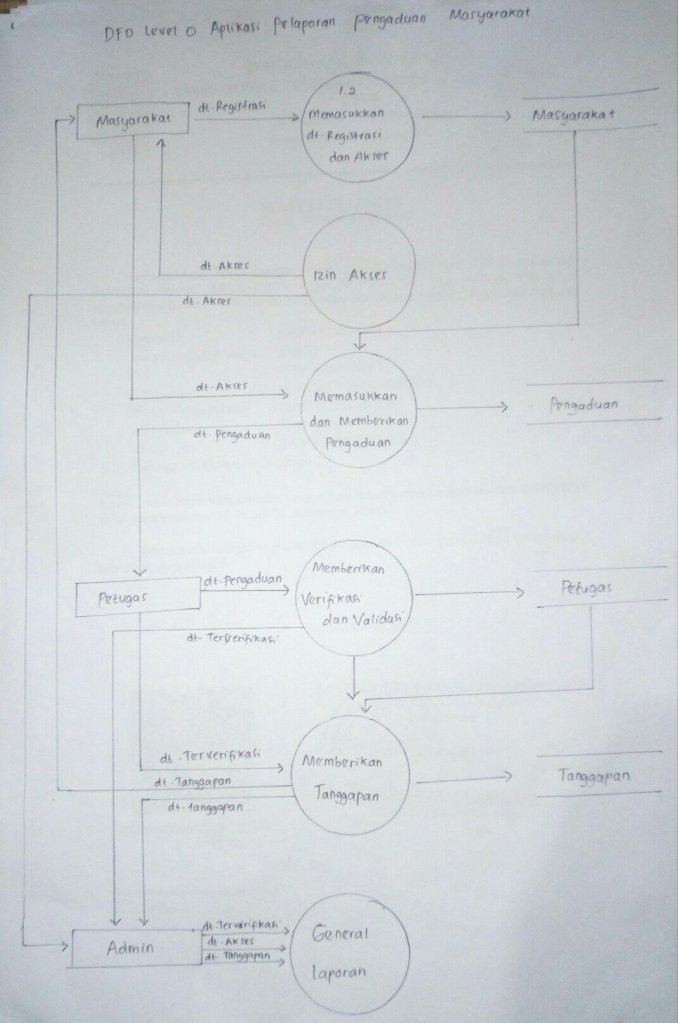 DFD Level 0 Aplikasi Pelaporan Pengaduan Masyarakat
Masyarakat
dt.Registrasi
1.2
Memasukkan
dt.Registrasi
dan Akses
Masyarakat
dt.Akses
Izin Akses
dt.Akses
dt.Akses
Memasukkan
dan Memberikan
Pengaduan
Pengaduan
dt.Pengaduan
Petugas
dt.Pengaduan
Memberikan
Verifikasi
dan Validasi
Petugas
dt-Terverifikasi
dt.Terverifikasi
Memberikan
Tanggapan
Tanggapan
dt.Tanggapan
dt.tanggapan
Admin
dt.Terverifikasi
dt.Akses
dt.Tanggapan
General
laporan